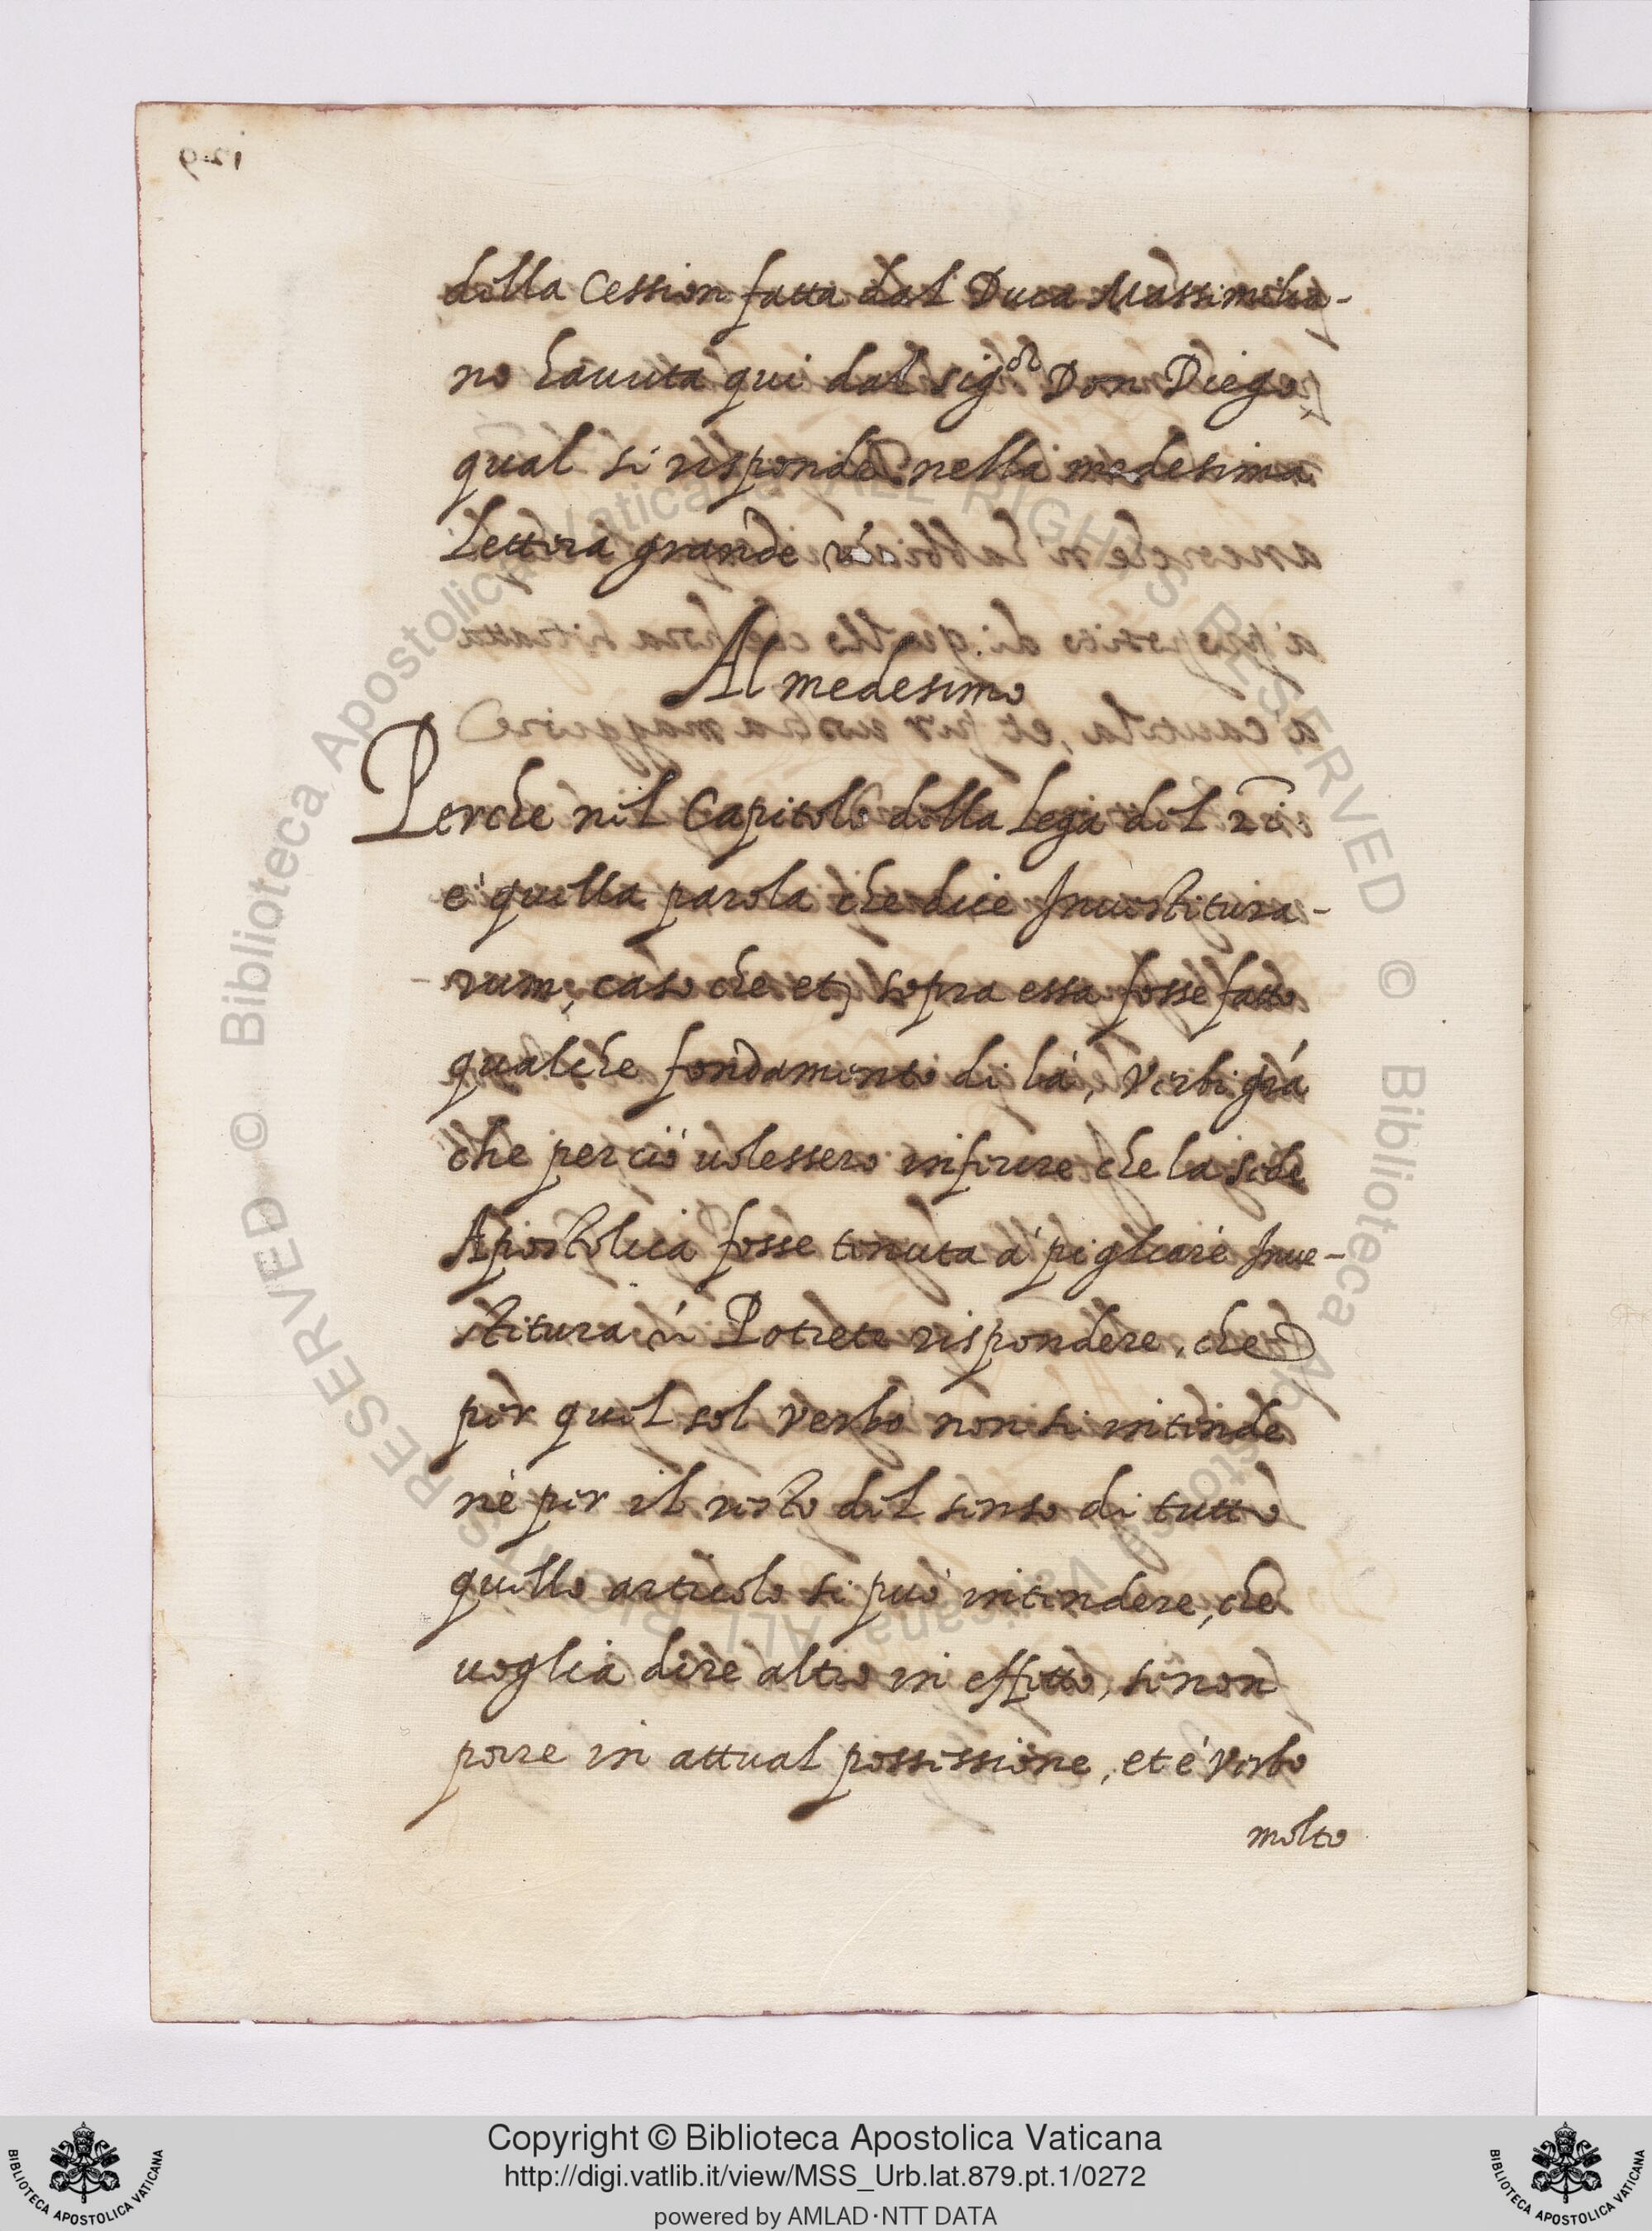 della Cession fatta dal Duca Massimilia-
no hauuta qui dal sig.or Don Diego
qual si risponde nella medesima
Lettera grande
Al medesimo
Perche nel Capitolo della Lega del 21
e' quella parola che dice Inuestitura-
rum, caso che et sopra essa fosse fatto
qualche fondamento di là, Verbi grá
che perciò uolessero inferire che la sede
Apostolica fosse tenuta à pigliare Inue-
stitura Potrete rispondere, che
per quel sol verbo non si intende
nè per il resto del senso di tutto
quello articolo si può intendere, che
uoglia dire altro in effetto, se non
porre in attual possessione, et è verbo
molto
© Biblioteca Apostolica Vaticana ALL RIGHTS RESERVED © Biblioteca Apostolica Vaticana ALL RIGHTS RESERVED
BIBLIOTECA APOSTOLICA VATICANA
Copyright © Biblioteca Apostolica Vaticana
http://digi.vatlib.it/view/MSS_Urb.lat.879.pt.1/0272
powered by AMLAD·NTT DATA
BIBLIOTECA APOSTOLICA VATICANA